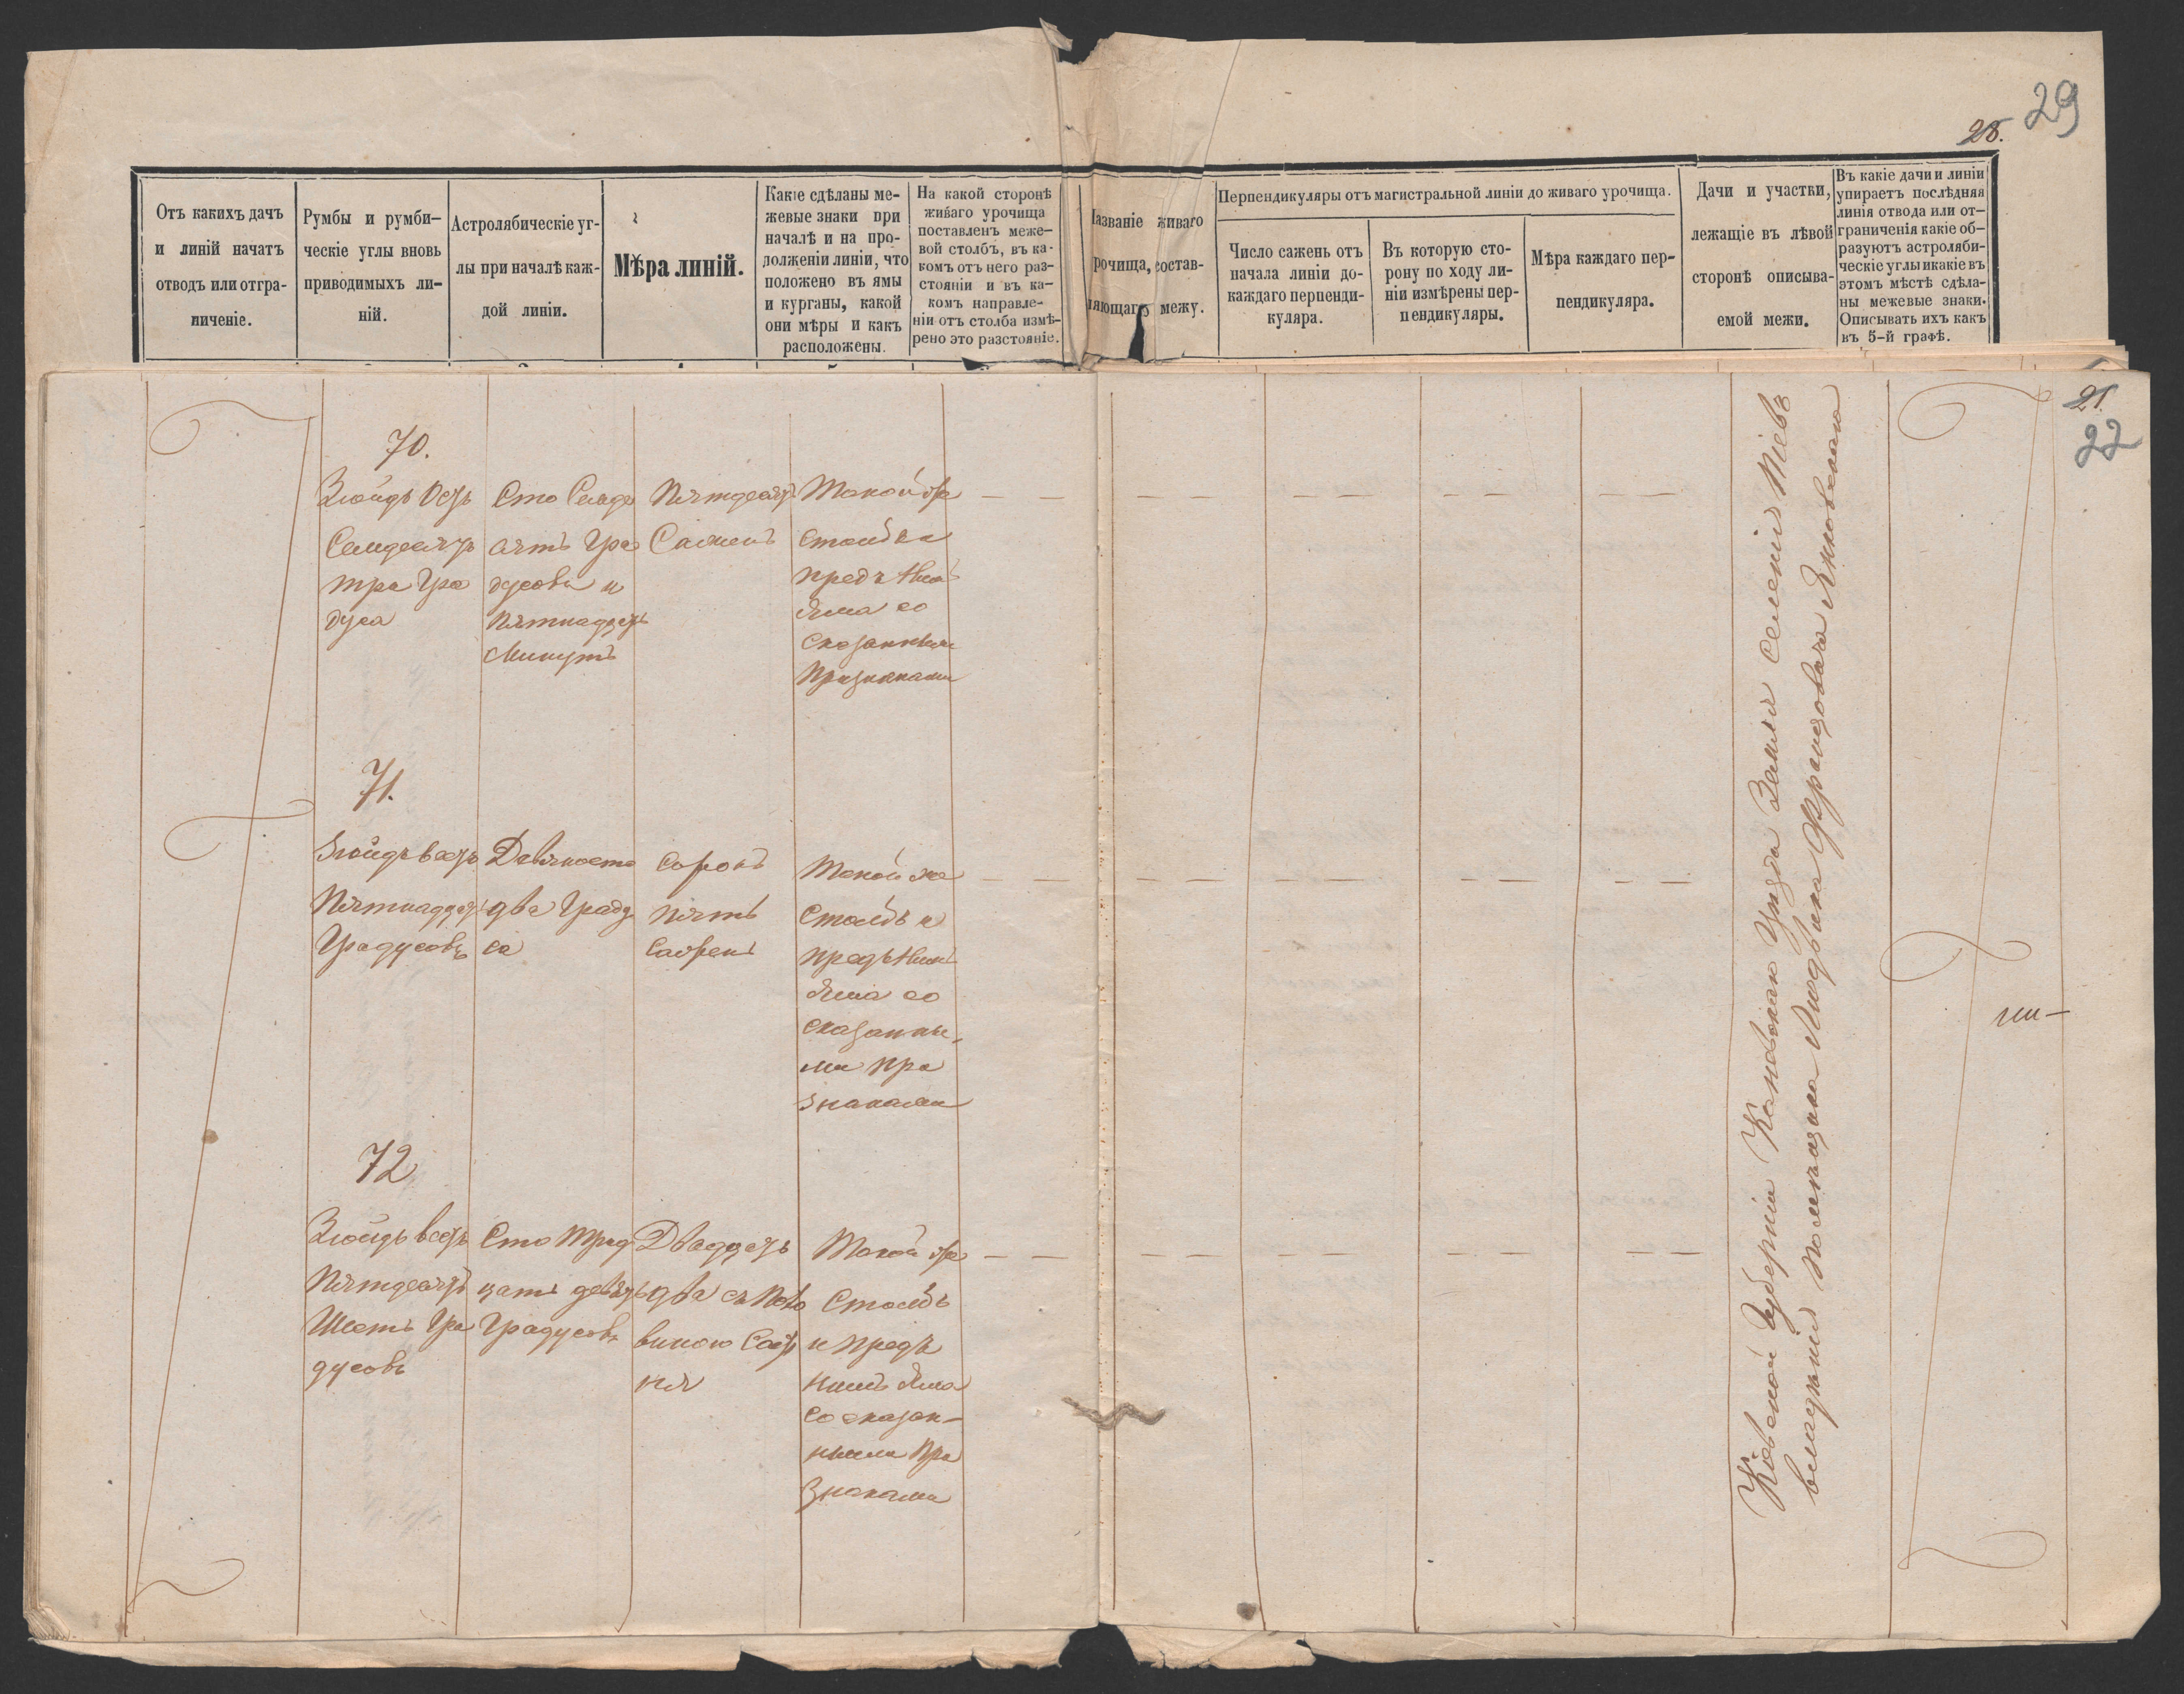 29
28.
Отъ какихъ дачъ
и линій начатъ
отводъ или отгра-
ниченіе.
Румбы и румби-
ческіе углы вновь
приводимыхъ ли-
ній.
Астролябическіе уг-
лы при началѣ каж-
дой линіи.
Мѣра линій.
Какіе сдѣланы ме-
жевые знаки при
началѣ и на про-
долженіи линіи, что
положено въ ямы
и курганы, какой
они мѣры и какъ
расположены.
На какой сторонѣ
живаго урочища
поставленъ меже-
вой столбъ, въ ка-
комъ отъ него раз-
стояніи и въ ка-
комъ направле-
ніи отъ столба измѣ-
рено это разстояніе.
Названіе живаго
рочища, состав-
ляющаго межу.
Перпендикуляры отъ магистральной линіи до живаго урочища.
Число сажень отъ
начала линіи до-
каждаго перпенди-
куляра.
Въ которую сто-
рону по ходу ли-
ніи измѣрены пер-
пендикуляры.
Мѣра каждаго пер-
пендикуляра.
Дачи и участки,
лежащіе въ лѣвой
сторонѣ описыва-
емой межи.
Въ какіе дачи и линіи
упираетъ послѣдняя
линія отвода или от-
граниченія какіе об-
разуютъ астроляби-
ческіе углы и какіе въ
этомъ мѣстѣ сдѣла-
ны межевые знаки.
Описывать ихъ какъ
въ 5-й графѣ.
21.
22
70.
Зюйдъ Остъ
Семдесятъ
три Гра
дуса
Сто Семде
сятъ Гра
дусовъ и
Пятнадцать
Минутъ
Пятдесятъ
Саженъ
Такой же
Столбъ и
предъ нимъ
Яма со
Сказанными
Признаками
71.
Зюйдъ вестъ
Пятнадцать
Градусовъ
Девяносто
два Граду
са
Сорокъ
пять
Саженъ
Такой же
Столбъ и
предъ нимъ
Яма со
Сказанны-
ми при
знаками
72
Зюйдъ вестъ
Пятдесятъ
Шесть Гра
дусовъ
Сто Трид
цать девять
Градусовъ
Двадцать
два съ Поло
виною Саже
ня
Такой же
Столбъ
и предъ
нимъ Яма
Со сказан-
ными При
знаками
Ковенской Губерніи Ковенскаго Уѣзда Земли селенія
владѣнія помѣщика Людвика Францовича Янковскаго